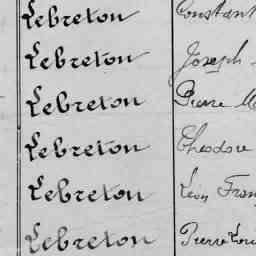 Lebreton Constant
Lebreton Joseph
Lebreton Pierre M
Lebreton Théodore
Lebreton Léon Fran
Lebreton Pierre Loui